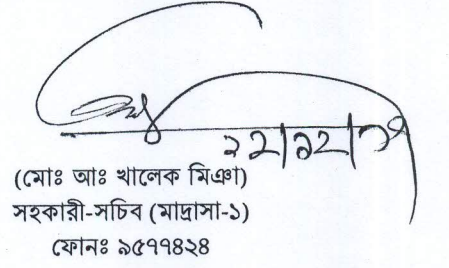 ২২|১২|১৭
(মোঃ আঃ খালেক মিঞা)
সহকারী-সচিব (মাদ্রাসা-১)
ফোনঃ ৯৫৭৭৪২৪